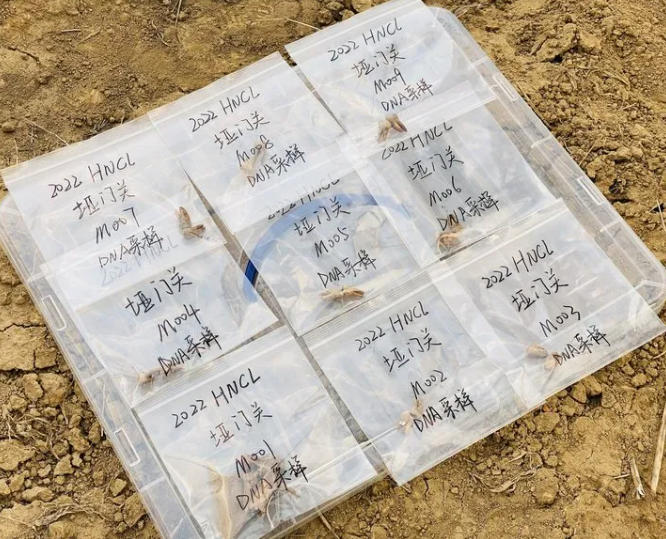 2022 HNCL
垭门关
M009
DNA采样
2022 HNCL
垭门关
M008
DNA采样
2022 HNCL
垭门关
M007
DNA采样
HNCL
垭门关
M006
DNA采样
2022 HNCL
垭门关
M005
DNA采样
2022 HNCL
垭门关
M004
DNA采样
2022 HNCL
垭门关
M003
DNA采样
2022 HNCL
垭门关
M002
DNA采样
2022 HNCL
垭门关
M001
DNA采样